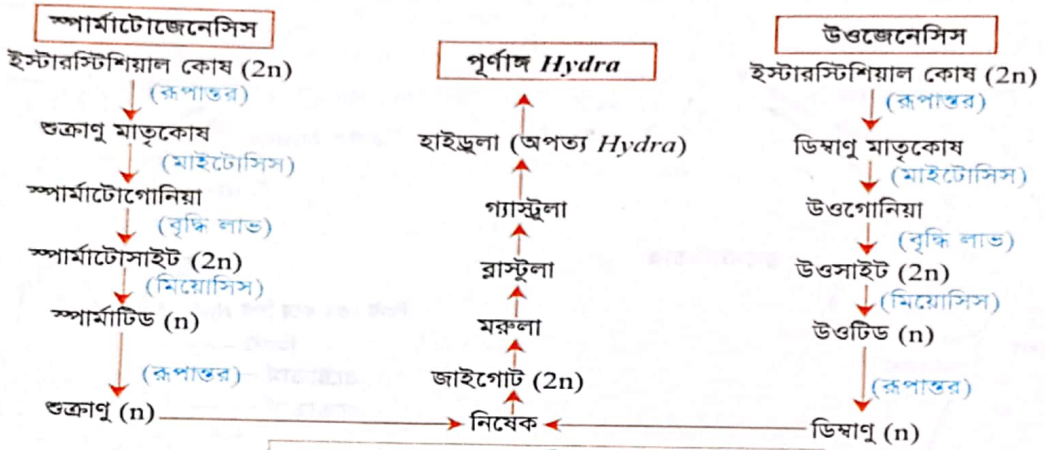 স্পার্মাটোজেনেসিস
ইস্টারস্টিশিয়াল কোষ (2n)
(রূপান্তর)
শুক্রাণু মাতৃকোষ
(মাইটোসিস)
স্পার্মাটোগোনিয়া
(বৃদ্ধি লাভ)
স্পার্মাটোসাইট (2n)
(মিয়োসিস)
স্পার্মাটিড (n)
(রূপান্তর)
শুক্রাণু (n)
পূর্ণাঙ্গ Hydra
হাইড্রুলা (অপত্য Hydra)
গ্যাস্ট্রুলা
ব্লাস্টুলা
মরুলা
জাইগোট (2n)
নিষেক
উওজেনেসিস
ইস্টারস্টিশিয়াল কোষ (2n)
(রূপান্তর)
ডিম্বাণু মাতৃকোষ
(মাইটোসিস)
উওগোনিয়া
(বৃদ্ধি লাভ)
উওসাইট (2n)
(মিয়োসিস)
উওটিড (n)
(রূপান্তর)
ডিম্বাণু (n)